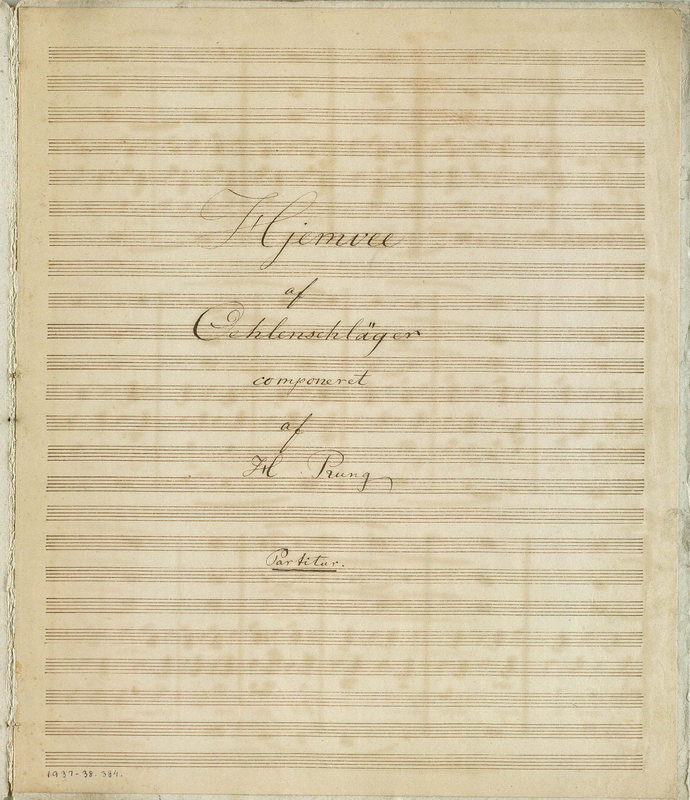 Hjemvee
af
Oehlenschläger
componeret
af
H. Rung
Partitur.
1937-38. 384.